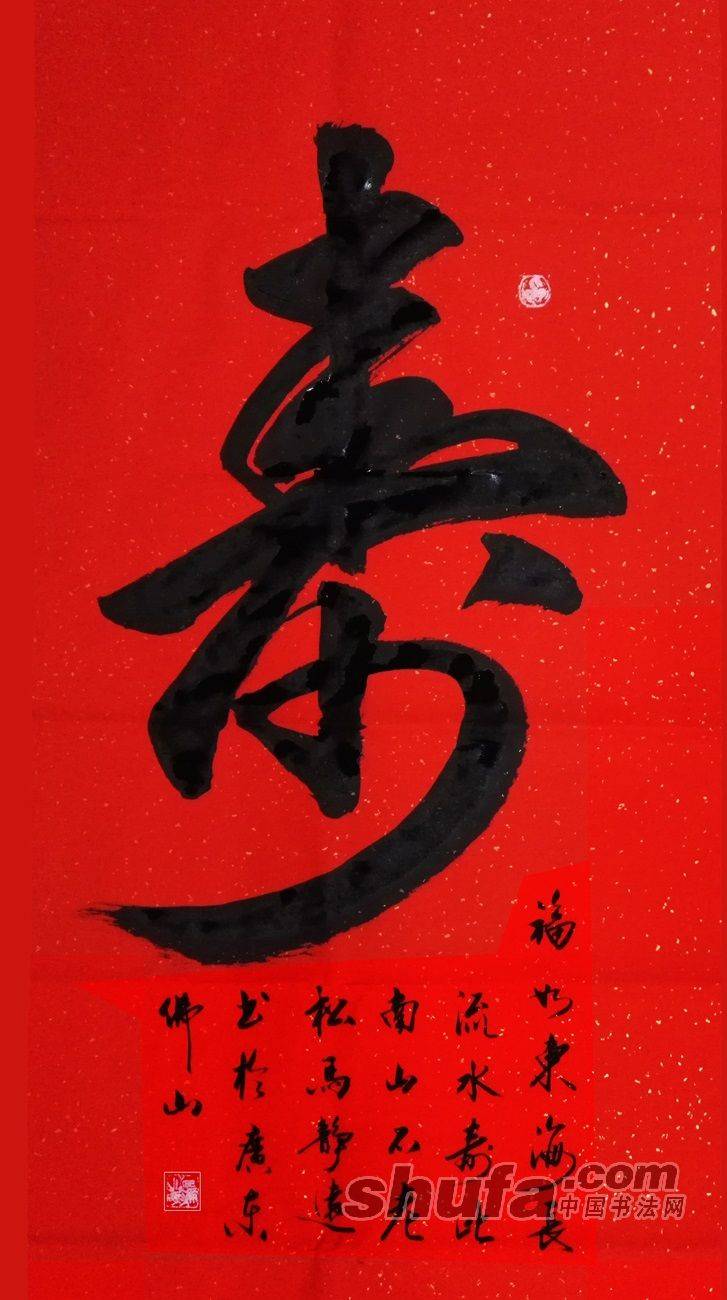 寿
福如東海長
流水寿比
南山不老
松馬静遠
书於廣东
佛山
shufa.com
中国书法网